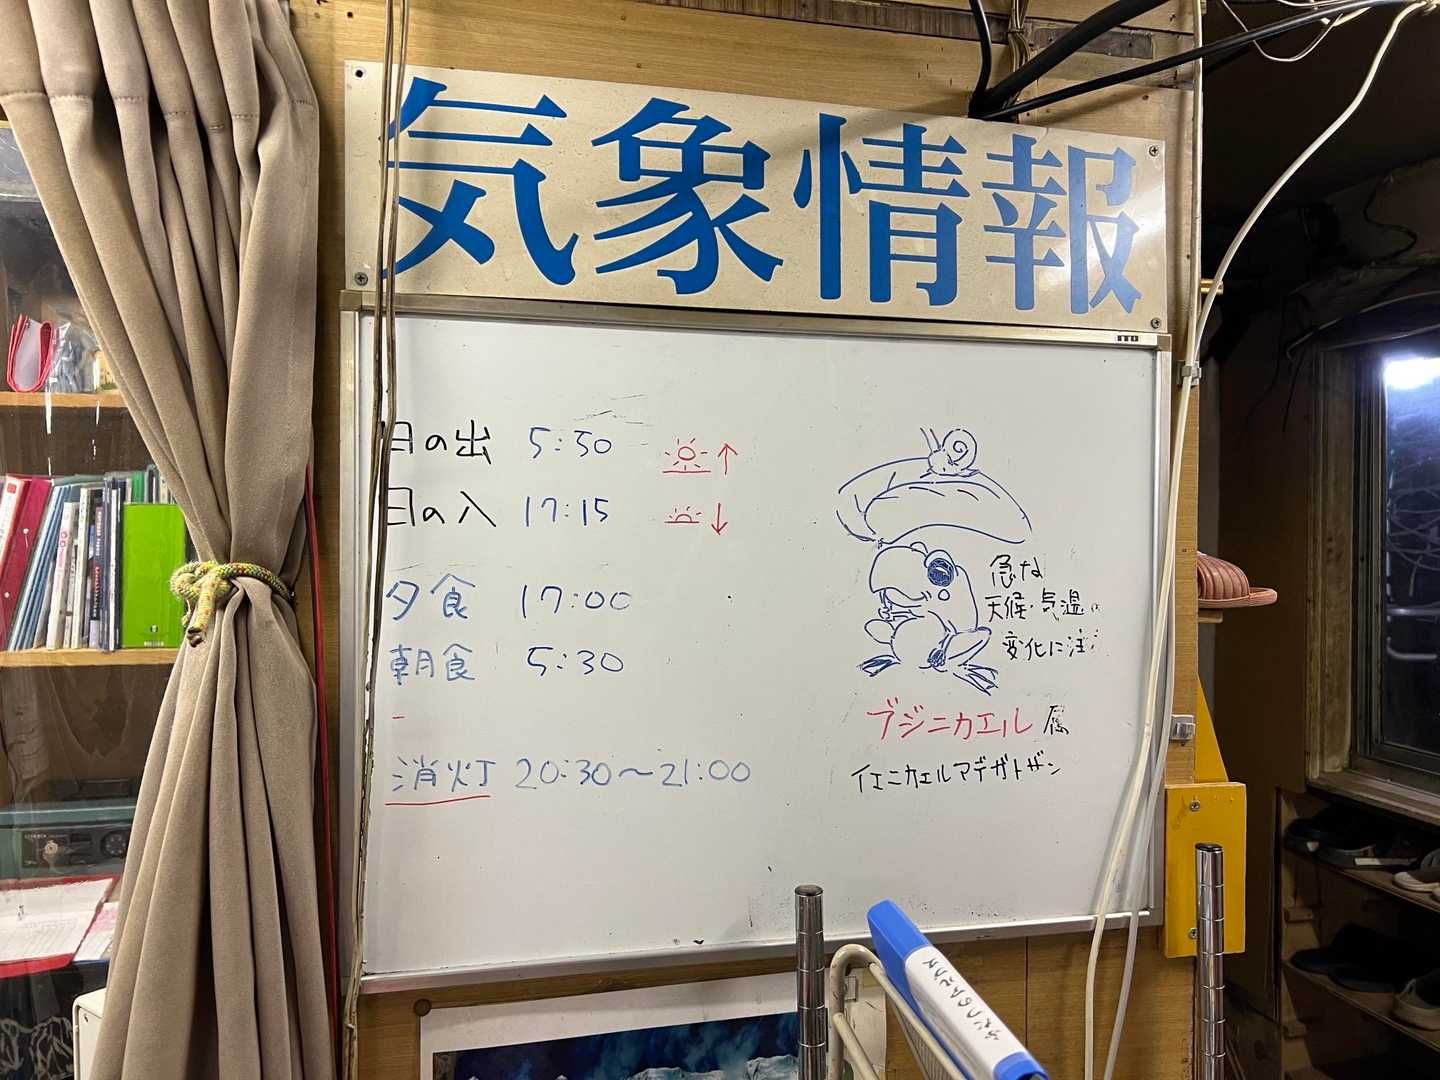 気象情報
ITO
日の出 5:50
日の入 17:15
夕食 17:00
朝食 5:30
消灯 20:30～21:00
急な
天候・気温に
変化に注
ブジニカエル 属
イエニカエルマデガトザン